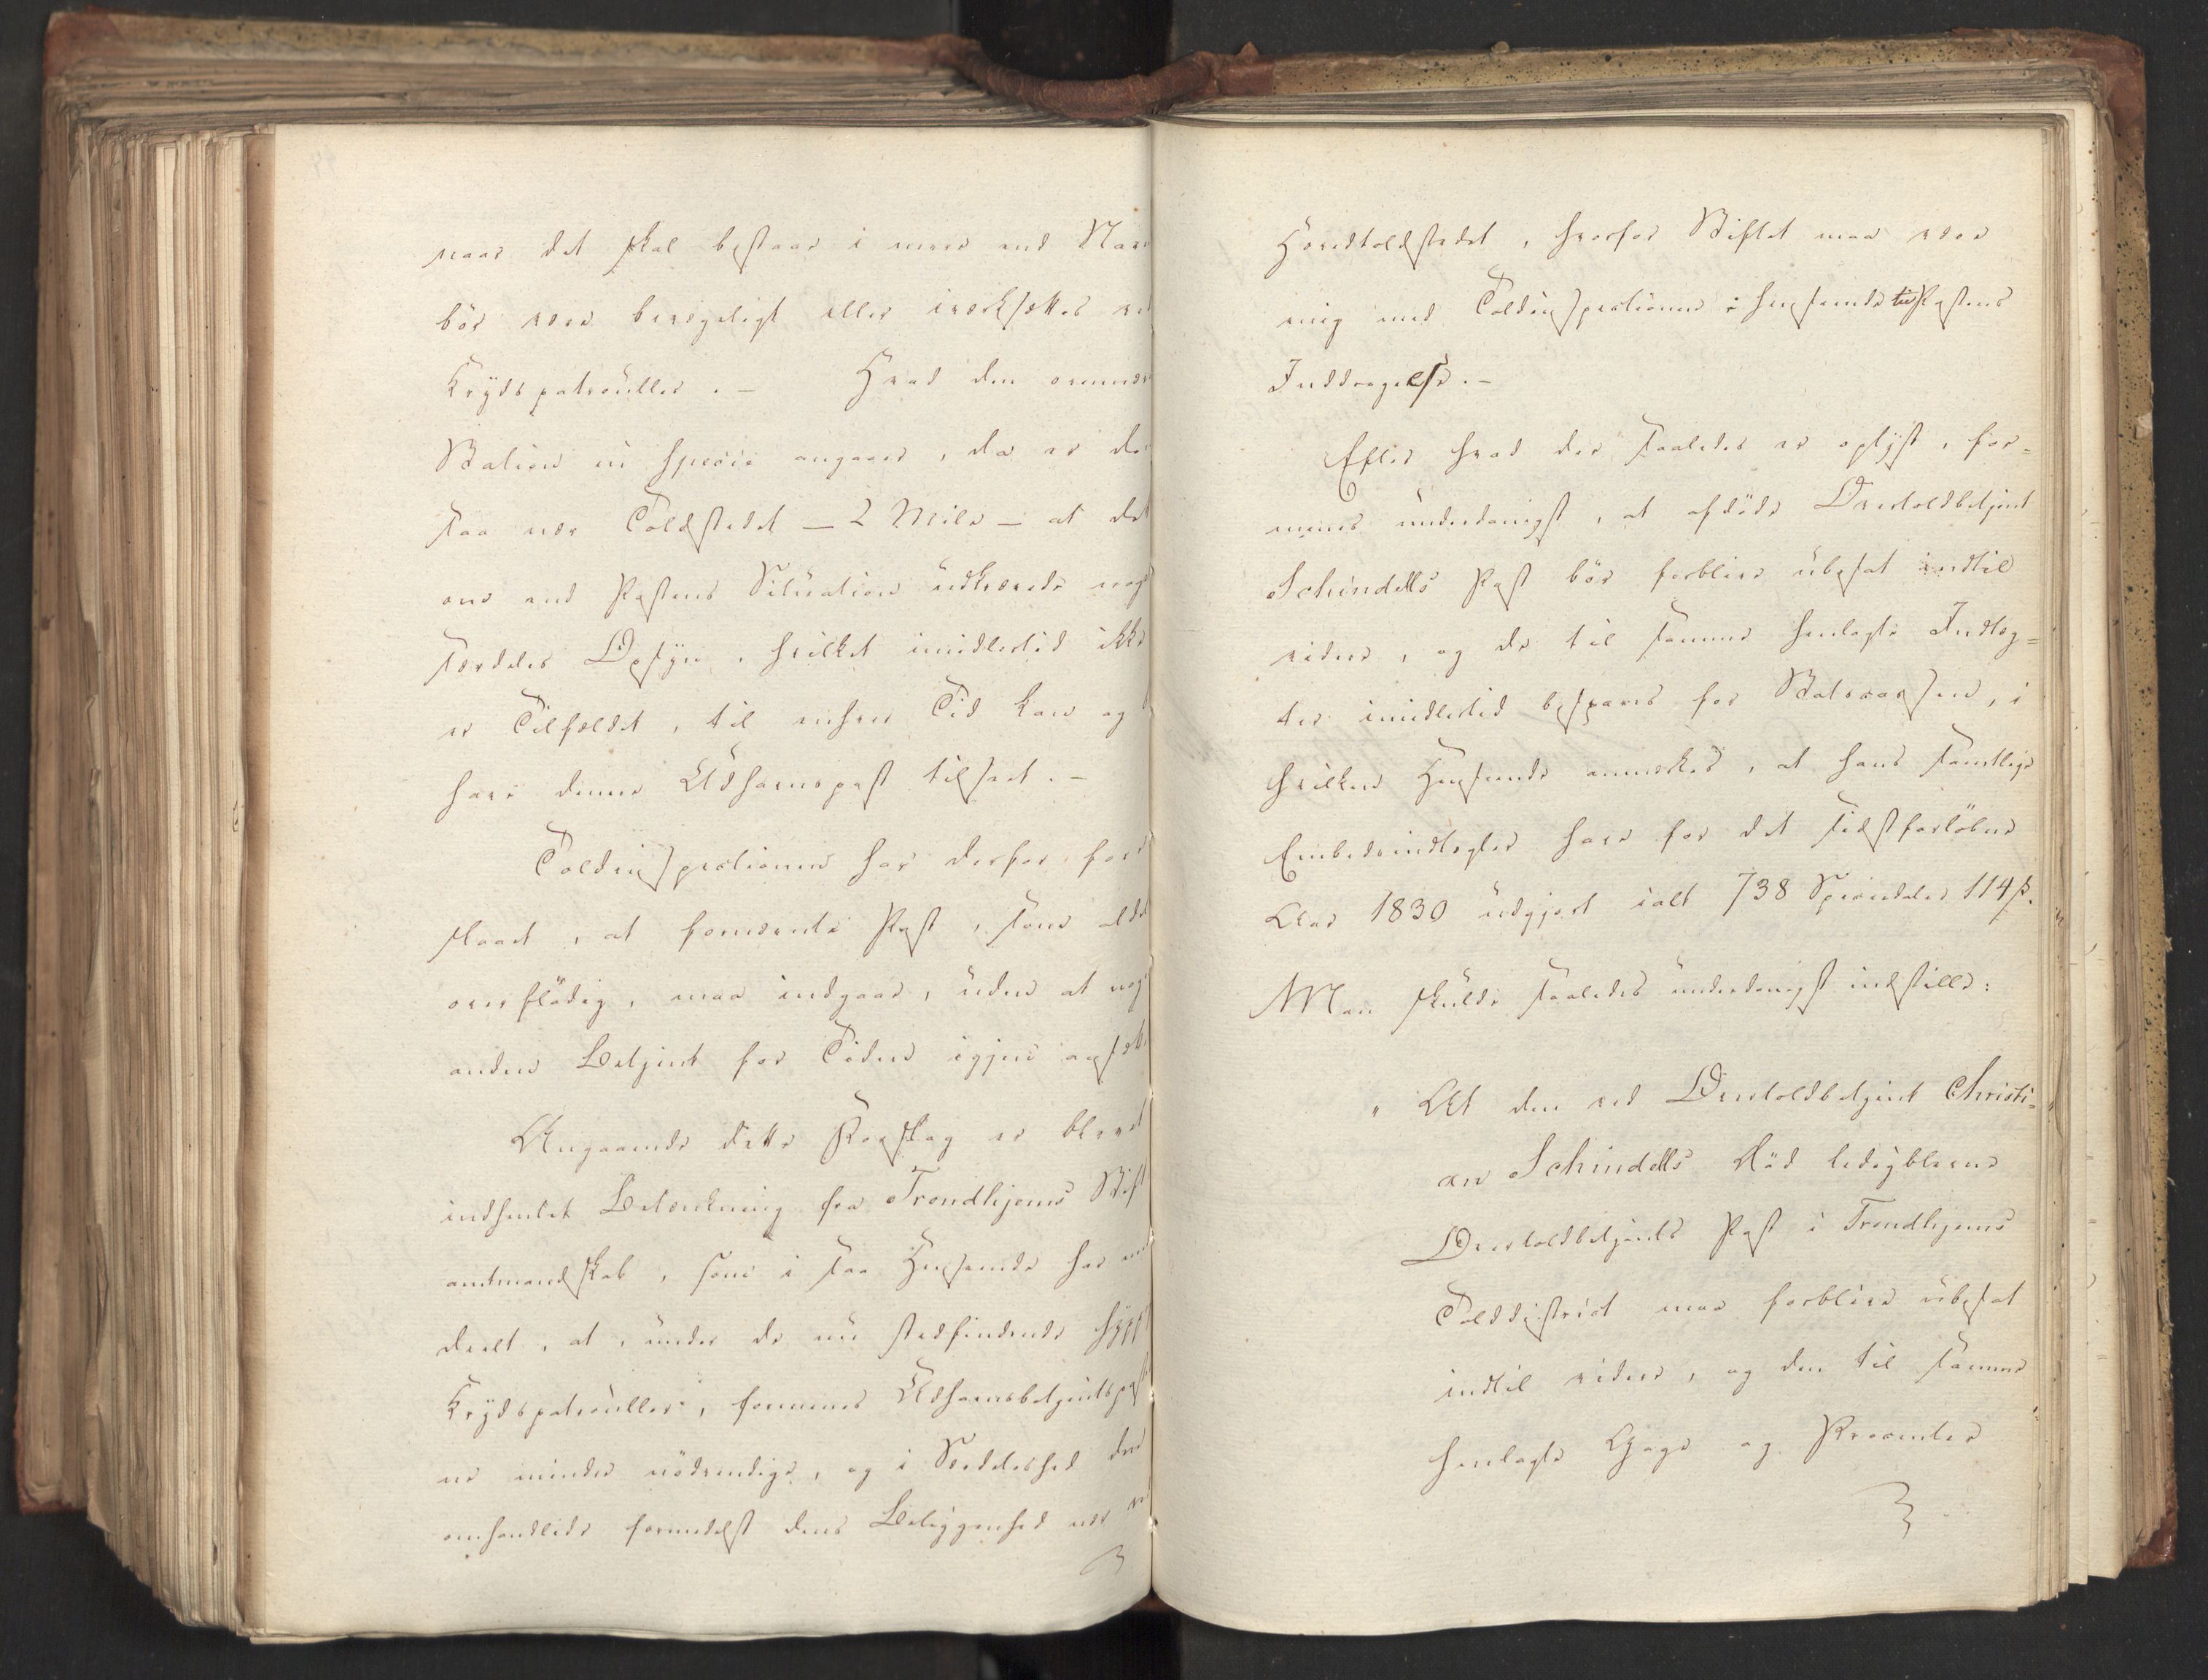 naar det skal bestaae i mere end Navn
bör være bevægeligt eller iværksættes ved
Krydspatrouiller. — Hvad den ommeldte
Station in specie angaaer, da er den
saa nær Toldstedet — 2 Mile — at det
om end Postens Situation udkrævede noget
særdeles Opsyn, hvilket imidlertid ikke
er Tilfældet, til enhver Tid kan og
have denne Udhavnspost tilseet. —
Toldinspectionen har derfor fore
slaaet, at fornævnte Post, som aldeles
overflödig, maa indgaae, uden at nogen
anden Betjent for Tiden igjen ansættes
Angaaende dette Forslag er bleven
indhentet Betænkning fra Trondhjems Stift
amtmandskab, som i saa Henseende har med
deelt, at, under de nu stedfindende hypp
Krydspatrouiller, formenes Udhavnsbetjentspost
er mindre nödvendige, og i Særdeleshed den
omhandlede formedelst dens Beliggenhed nær ved
Hovedtoldstedet, hvorfor Stiftet maa være
enig med Toldinspectionen i Henseende til Postens
Inddragelse. —
Efter hvad der saaledes er oplyst, for=
menes underdanigst, at afdöde Overtoldbetjent
Schindells Post bör forblive ubesat indtil
videre, og de til samme henlagte Indtæg=
ter imidlertid bespares for Statscassen, i
hvilken Henseende anmærkes, at hans samtlige
Embedsindtægter have for det sidstforløbne
Aar 1830 udgjort ialt 738 Speciedaler 114 ß.
Man skulde saaledes underdanigst indstille:
" At den ved Overtoldbetjent Christi= "
an Schindells Död ledigblevne
Overtoldbetjents Post i Trondhjems
Tolddistrict maa forblive ubesat
indtil videre, og den til samme
henlagte Gage og Procenter